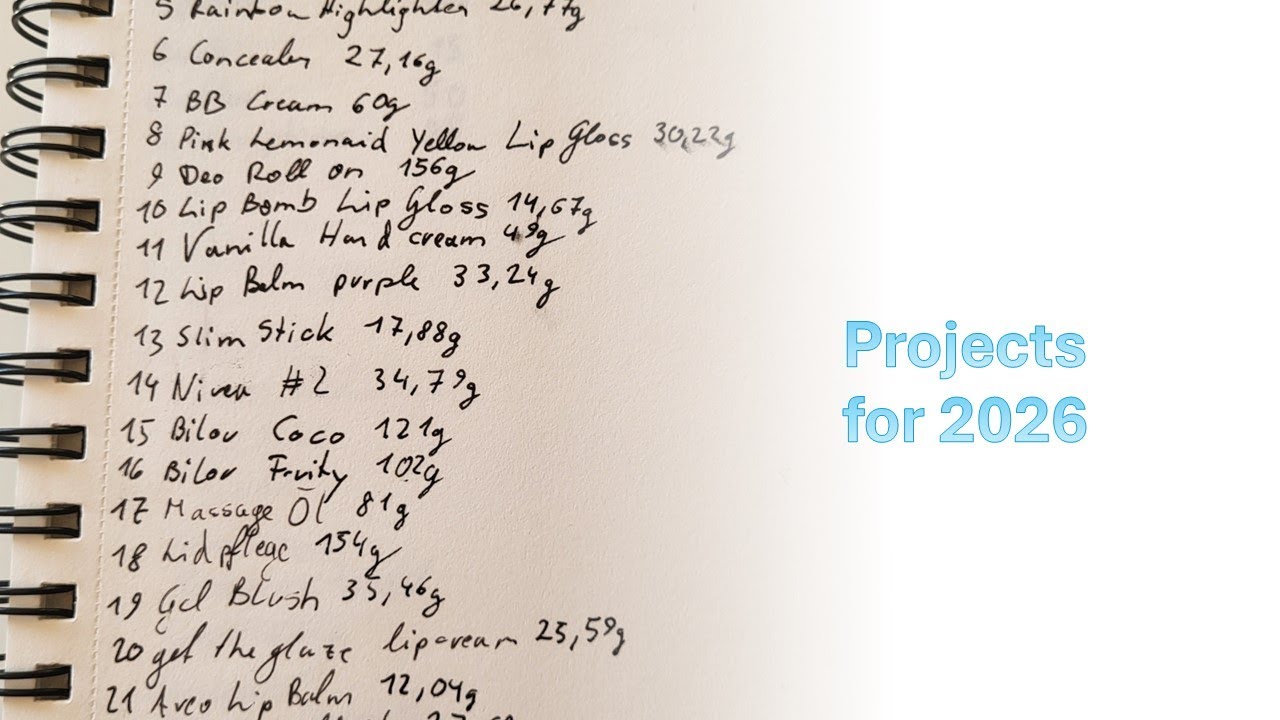 5 Rainbow Highlighter 26,77g
6 Concealer 27,16g
7 BB Cream 60g
8 Pink Lemonaid Yellow Lip Gloss 30,22g
9 Deo Roll on 156g
10 Lip Bomb Lip Gloss 14,67g
11 Vanilla Hand cream 49g
12 Lip Balm purple 33,24g
13 Slim Stick 17,88g
14 Nivea #2 34,79g
15 Bilou Coco 121g
16 Bilou Fruity 102g
17 Massage Öl 81g
18 Lidpflege 154g
19 Gel Blush 35,46g
20 get the glaze lipcream 25,59g
21 Aveo Lip Balm 12,04g
Projects
for 2026